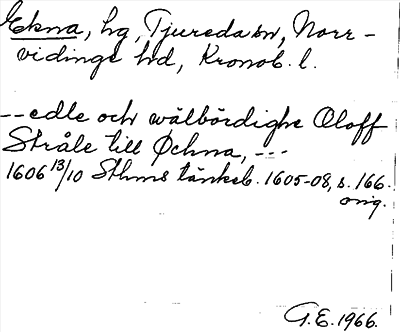 Ekna, hg, Tjureda sn, Norr-
vidinge hd, Kronob. l.
-- edle och wälbördighe Oloff
Stråle till Öckna, ---
1606 13/10 Sthms tänkeb. 1605-08, s. 166.
orig.
G.E. 1966.